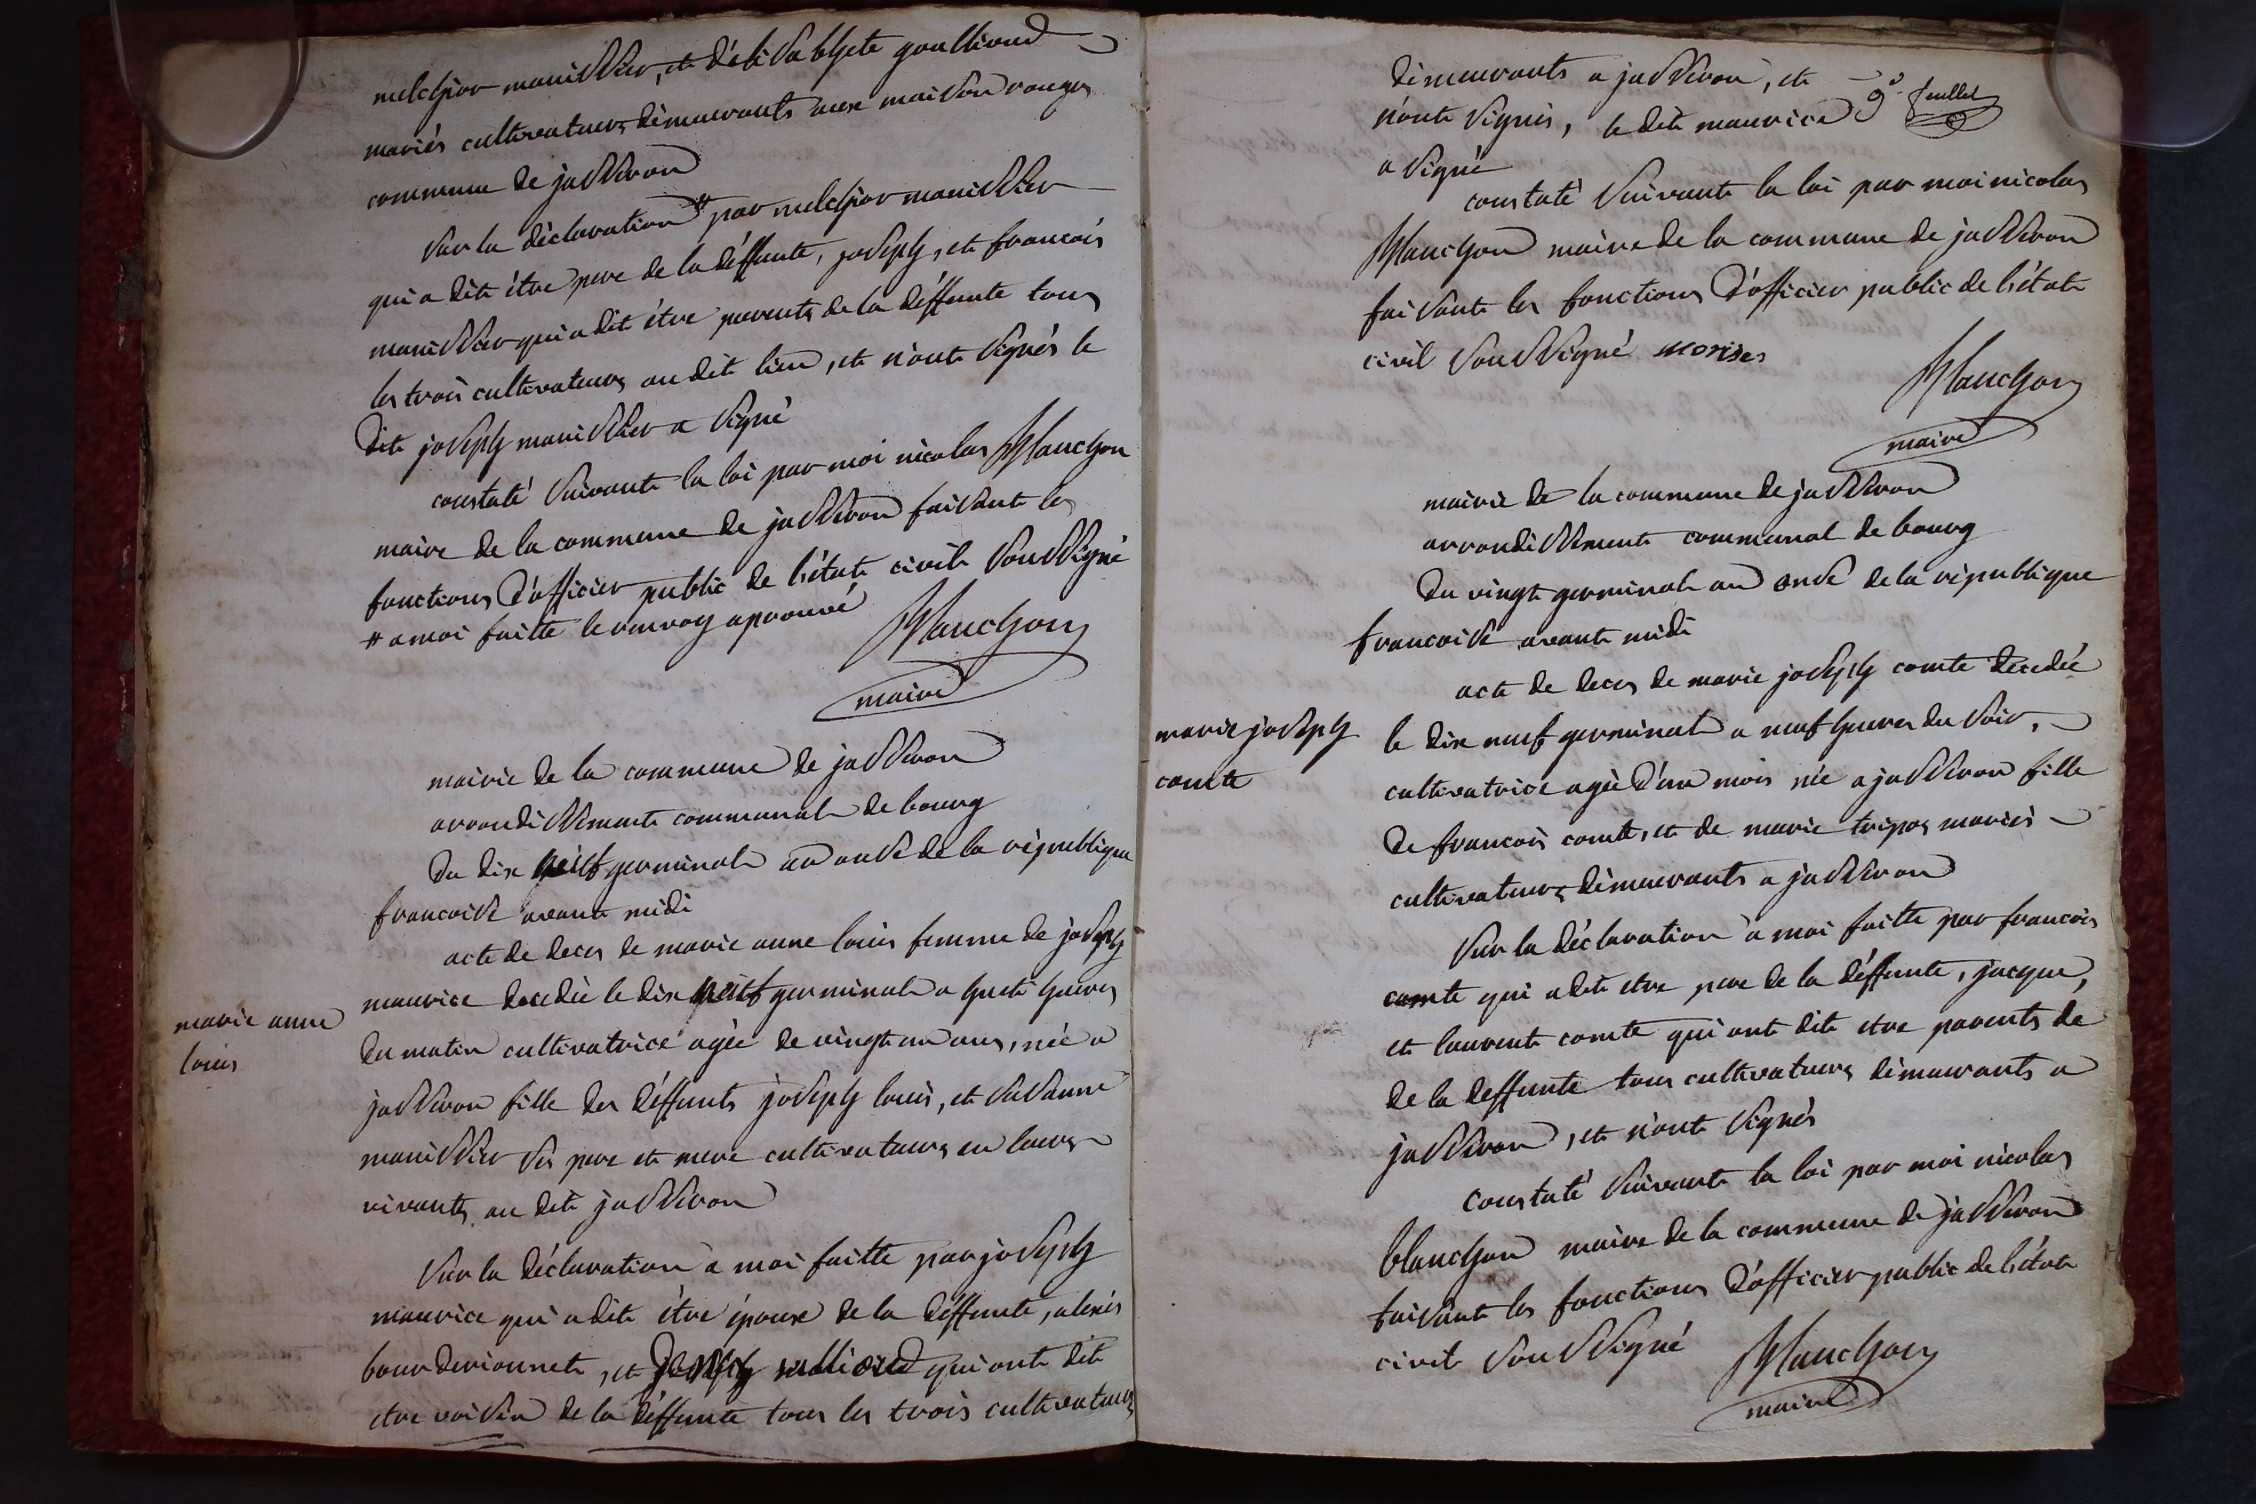 melchior manissier, et d'elisabhete goulliond
mariés cultivateurs démeurants aux maison rouges
commune de jasseron
sur la déclaration # par melchior manissier
qui a dit étre pere de la déffunte, joseph, et francois
manissier qui a dit étre parents de la déffunte tous
les trois cultivateurs au dit lieu, et n'onts signés le
dit joseph manissier a signé
constaté suivants la loi par moi nicolas Blanchon
maire de la commune de jasseron faisants les
fonctions d'officier public de l'états civils soussigné
# a moi faitte le renvoy aprouvé Blanchon
maire
mairie de la commune de jasseron
arrondissements communal de bourg
du dix germinal an onse de la républiqu
francoise avants midi
acte de deces de marie anne louis femme de joseph
marie anne
louis
maurice decedée le dix germinal a huit heures
du matin cultivatrice agée de vingt un ans, née a
jasseron fille des déffunts joseph louis, et susanne
manissier ses pere et mere cultivateurs en leurs
vivants au dit jasseron
Sur la déclaration a moi faitte par joseph
maurice qui a dit étre époux de la déffunte, alexis
bourderionnet, et joseph qui onts dit
etre voisin de la déffunte tous les trois cultivateurs
démeurants a jasseron, et
n'onts signés, le dit maurice
a signé
9e feuillet
constaté suivants la loi par moi nicolas
Blanchon maire de la commune de jasseron
faisants les fonctions d'officier public de l'états
civil soussigné morises
Blanchon
maire
mairie de la commune de jasseron
arrondissements communal de bourg
du vingt germinal an onse de la république
francoise avants midi
acte de deces de marie joseph comte decedée
marie joseph
comte
le dix neuf germinal a neuf heures du soir,
cultivatrice agée d'un mois née a jasseron fille
de francois comte, et de marie tripoz mariés
cultivateurs démeurants a jasseron
Sur la déclaration a moi faitte par francois
comte qui a dit etre pere de la déffunte, jacque,
et laurents comte qui onts dit etre parents de
de la deffunte tous cultivateurs démeurants a
jasseron, et n'onts signés
Constaté suivants la loi par moi nicolas
blanchon maire de la commune de jasseron
faisants les fonctions d'officier public de l'états
civil soussigné Blanchon
maire